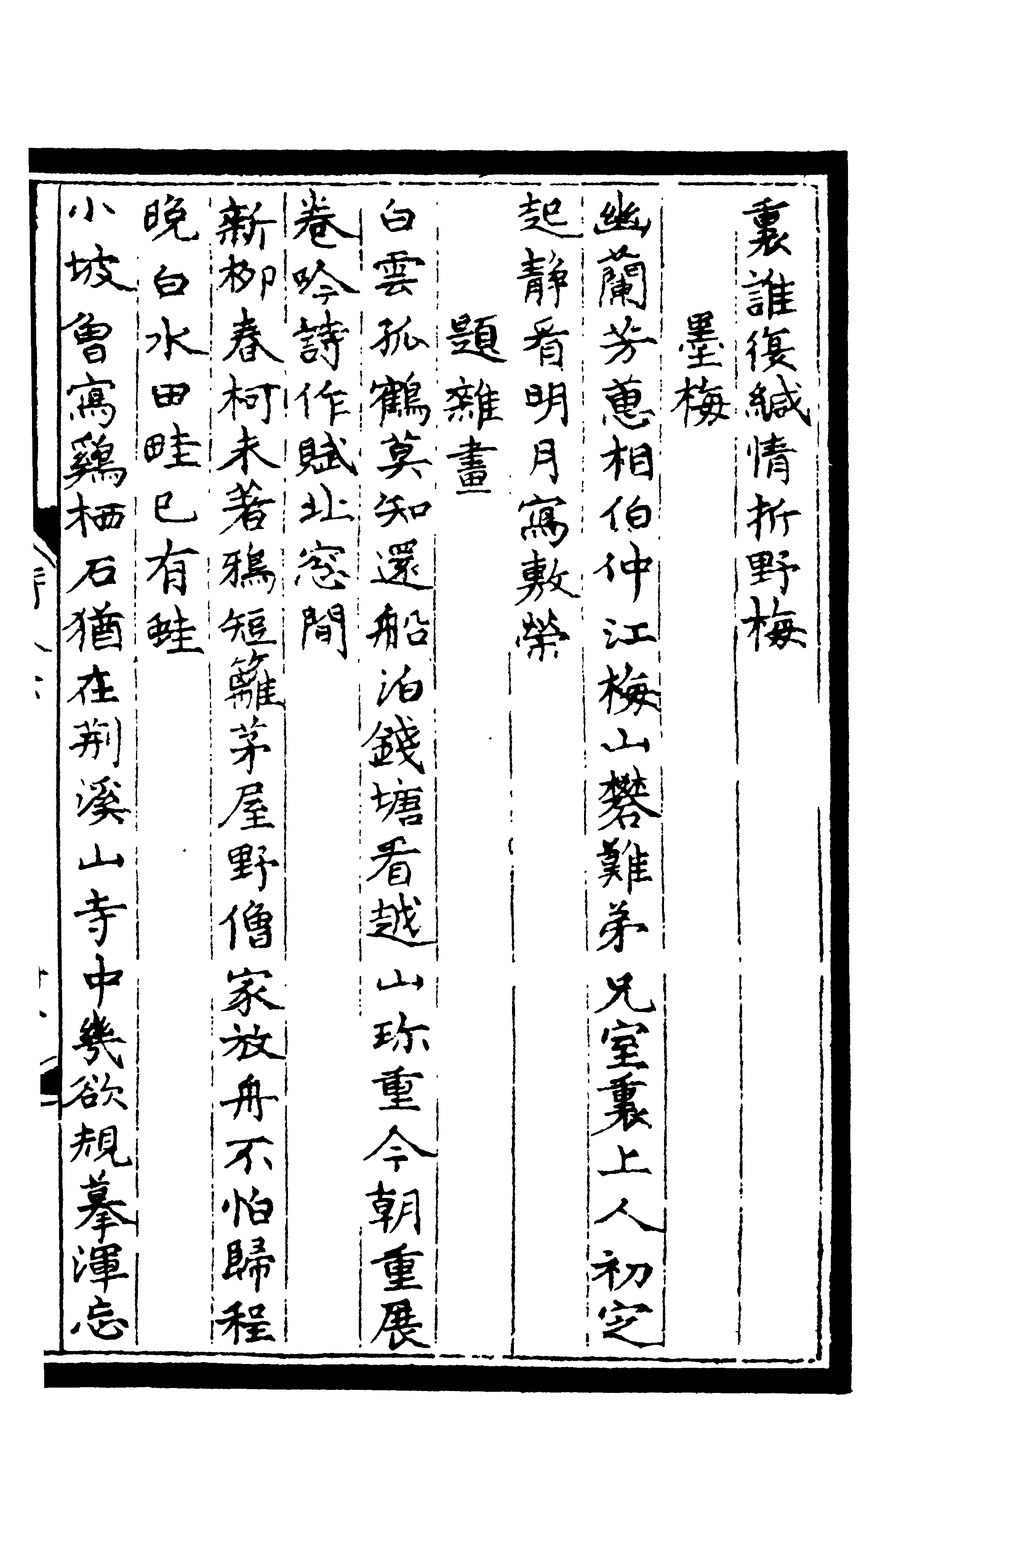 裏誰復緘情折野梅
墨梅
幽蘭芳蕙相伯仲江梅山礬難弟兄室裏上人初定
起靜看明月寫敷榮
題雜畫
白雲孤鶴莫知還船泊錢塘看越山珎重今朝重展
卷吟詩作賦北窓間
新柳春柯未著鴉短籬茅屋野僧家放舟不怕歸程
晚白水田畦已有蛙
小坡曾寫鷄栖石猶在荆溪山寺中幾欲規摹渾忘